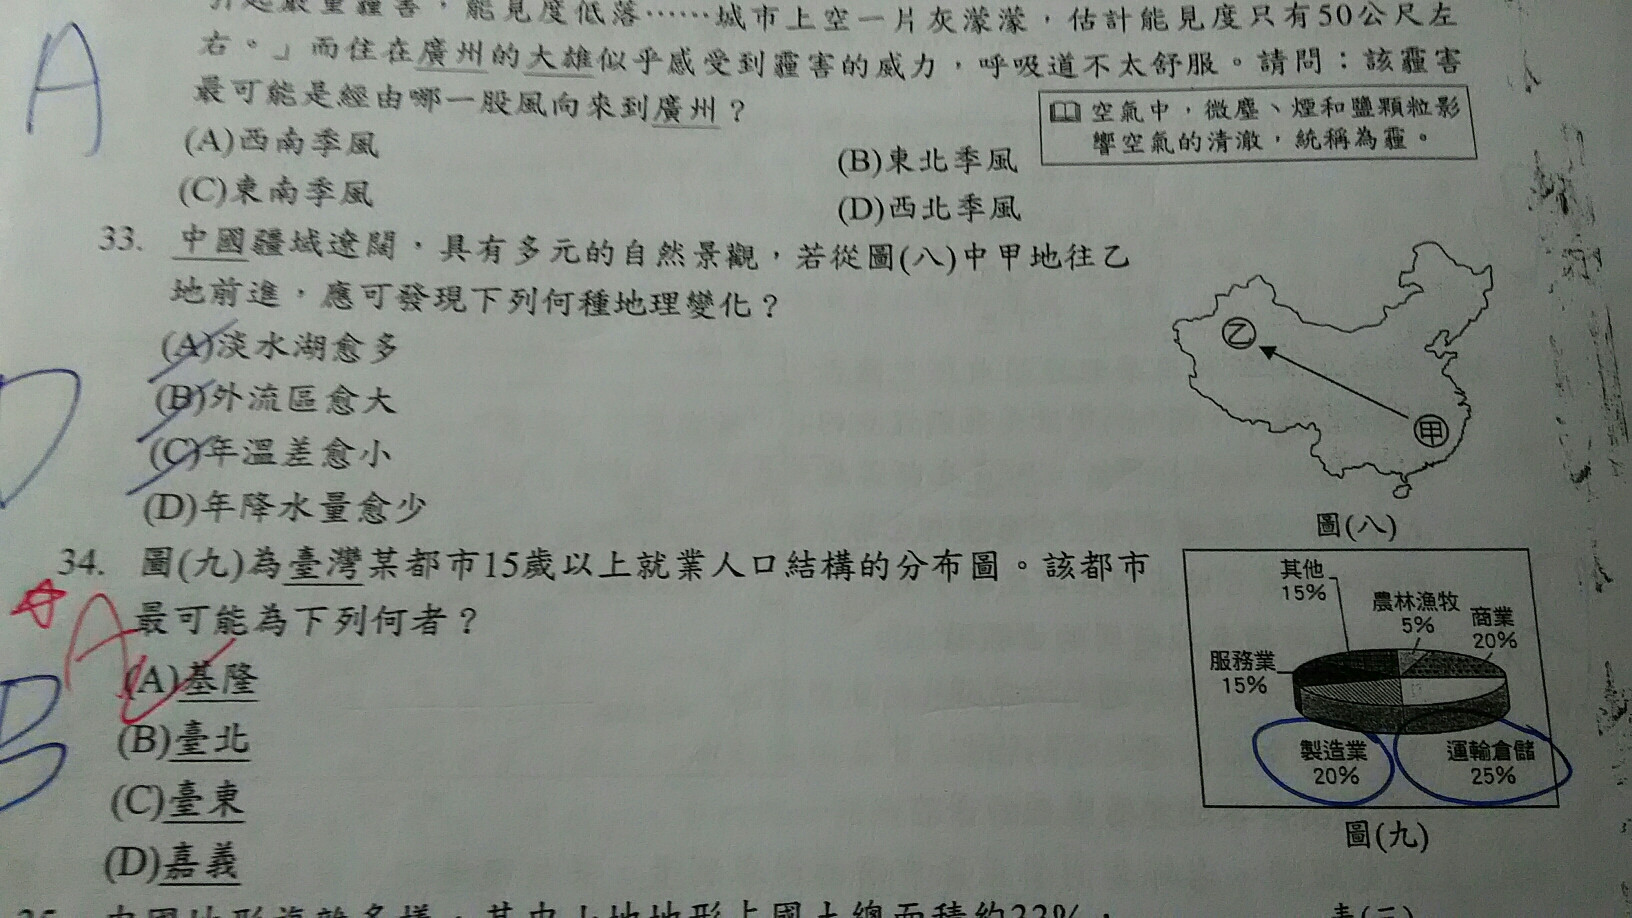 引起嚴重霾害，能見度低落……城市上空一片灰濛濛，估計能見度只有50公尺左
右。」而住在廣州的大雄似乎感受到霾害的威力，呼吸道不太舒服。請問：該霾害
最可能是經由哪一股風向來到廣州？
空氣中，微塵、煙和鹽顆粒影
響空氣的清澈，統稱為霾。
A
(A)西南季風
(B)東北季風
(C)東南季風
(D)西北季風
33. 中國疆域遼闊，具有多元的自然景觀，若從圖(八)中甲地往乙
地前進，應可發現下列何種地理變化？
(A)淡水湖愈多
(B)外流區愈大
(C)年溫差愈小
(D)年降水量愈少
D
乙
甲
圖(八)
34. 圖(九)為臺灣某都市15歲以上就業人口結構的分布圖。該都市
最可能為下列何者？
A
B
(A)基隆
(B)臺北
(C)臺東
(D)嘉義
其他
15%
農林漁牧
5%
商業
20%
服務業
15%
製造業
20%
運輸倉儲
25%
圖(九)
35. 中國地形複雜多樣，其中山地地形占國土總面積約33%，
表(二)